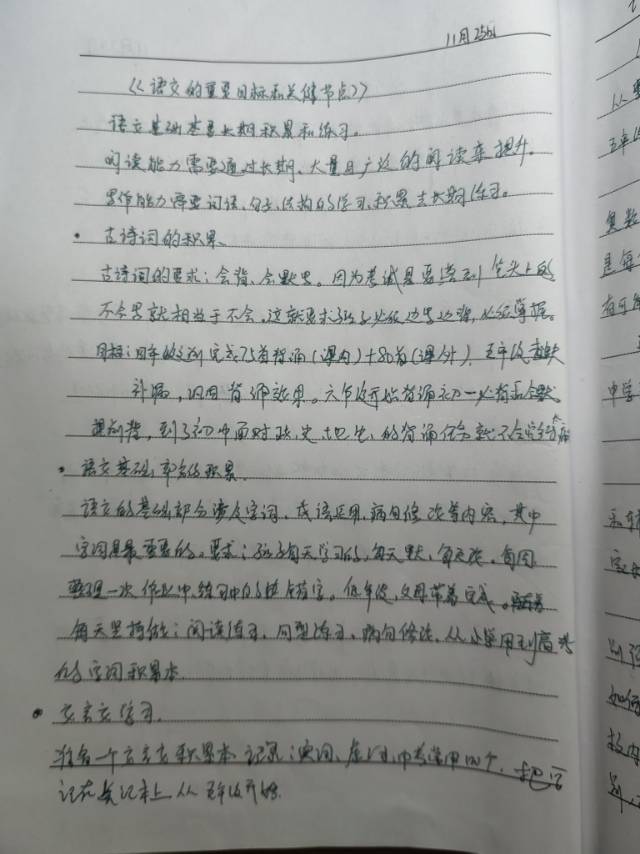 11月25日
《语文的重要目标和关键节点》
语文基础本是长期积累和练习。
阅读能力需要通过长期、大量且广泛的阅读来提升。
写作能力需要词语、句子、结构的学习、积累去长期练习。
• 古诗词的积累、
古诗词的要求：会背、会默写。因为考试是要落到笔头上的
不会写就相当于不会、这就要求孩子必须边写边背，必须掌握。
目标：四年级之前完成75首背诵（课内）+80首（课外）. 五年级查缺
补漏，巩固背诵效果。六年级开始背诵初一必背
提前背，到了初中面对政、史、地、生、的背诵任务就不会
• 语文基础部分的积累
语文的基础部分涉及字词、成语运用、病句修改等内容，其中
字词是最重要的。要求：孩子每天学习的，每天默，每天改。每周
整理一次作业中、练习中的 错字。低年级，父母带着完成。
每天坚持做：阅读练习、句型练习、病句修改、从小学用到高考
的字词积累本
• 文言文学习.
准备一个文言文积累本 记录：实词、虚词、中考常用 个.
记在 记本上 从五年级开始.
从
五年级
复数
是每
有可能
中学
如何
校内